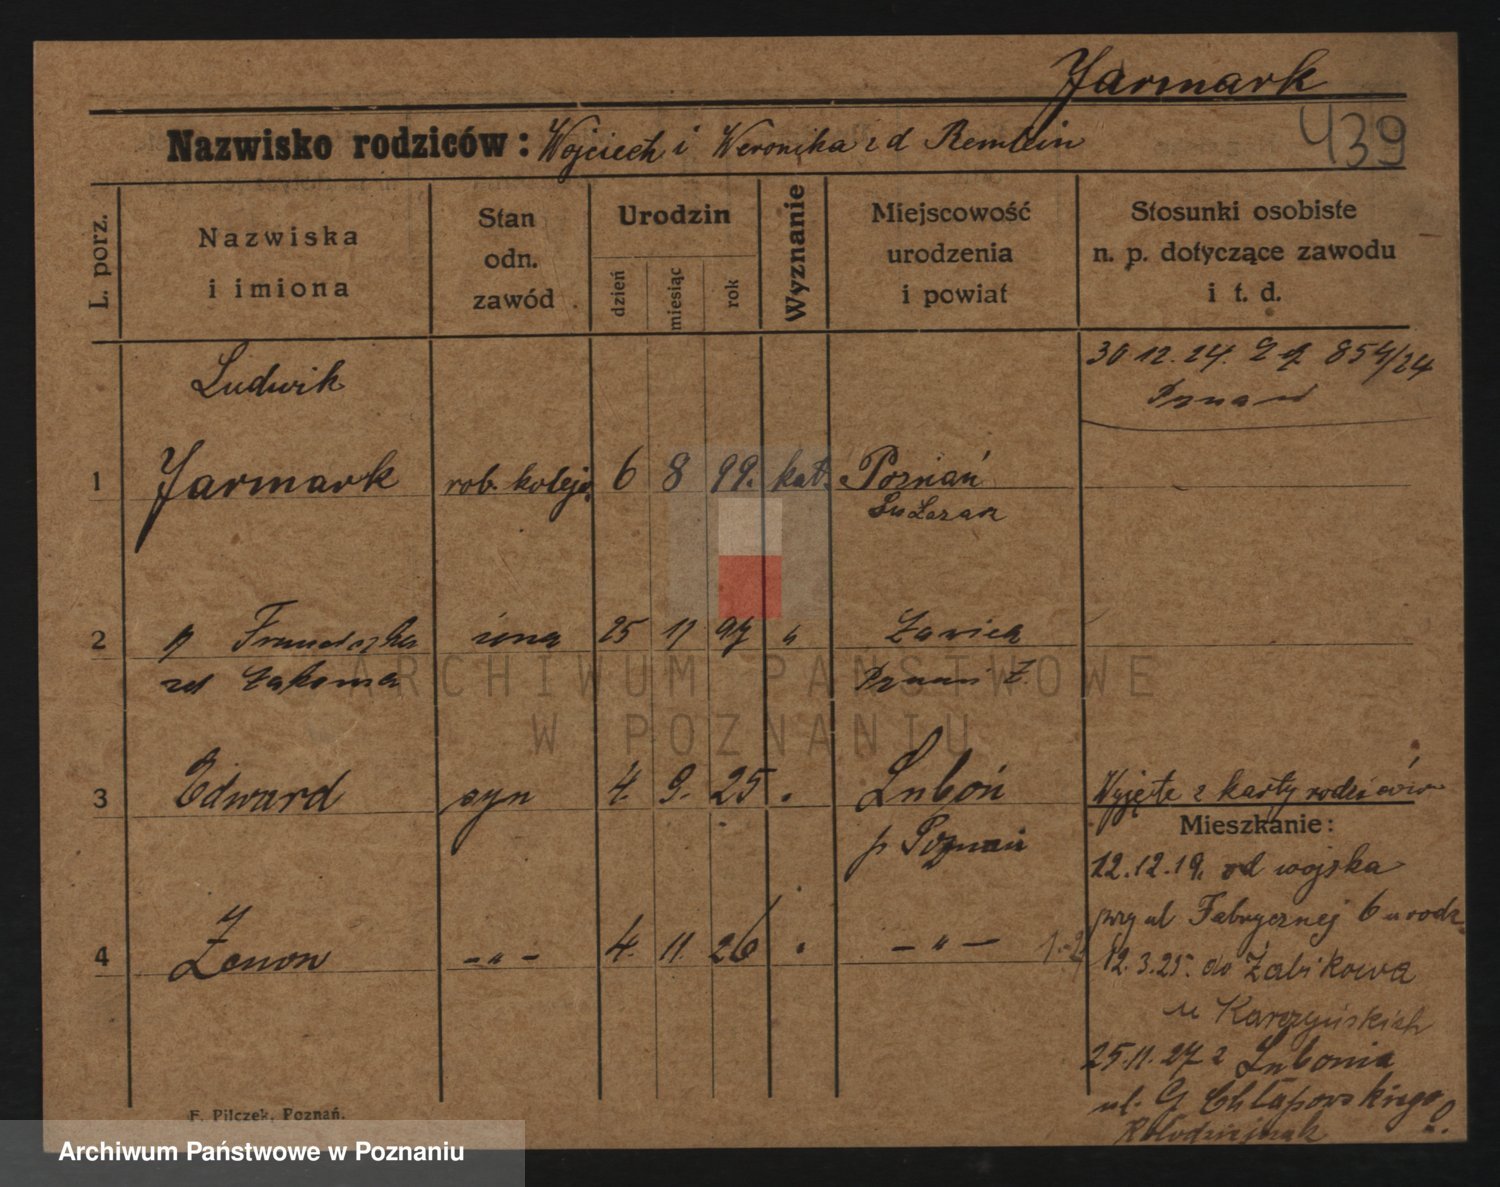 Jarmark
439
Nazwisko rodziców: Wojciech i Weronika z d Remlein
L. porz.
Nazwiska
i imiona
Stan
odn.
zawód
Urodzin
dzień
miesiąc
rok
Wyznanie
Miejscowość
urodzenia
i powiat
Stosunki osobiste
n. p. dotyczące zawodu
i t. d.
Ludwik
30 12. 24. 854/24
Poznań
1 Jarmark rob. kolejo. 6 8 99. kat. Poznań
Św Łazarz
2 Franciszka żona 25 11 97 " Ławica
zd Łakoma Poznań Z.
3 Edward syn 4. 9. 25 . Luboń
Wyjęte z karty rodziców
p Poznań
Mieszkanie:
12.12.19. od wojska
przy ul Fabrycznej 6 u rodz
4 Zenon – " – 4. 11. 26 . – " –
12.3.25. do Żabikowa
u Karczyńskich
25.11.27 z Lubonia
ul. G Chłapowskiego
u.
Kołodziejczak
F. Pilczek, Poznań.
ARCHIWUM PAŃSTWOWE
W POZNANIU
Archiwum Państwowe w Poznaniu